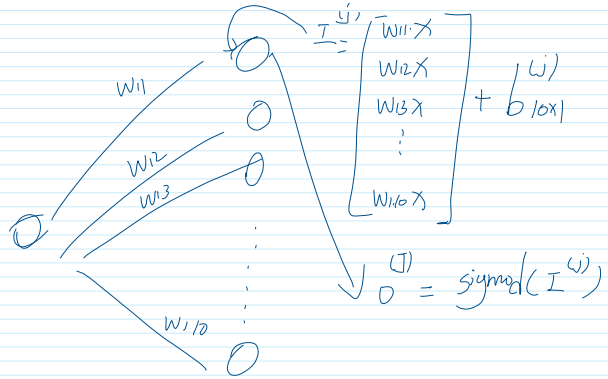 W11
W12
W13
W1,10
I^(j) = [ W11·X
W12X
W13X
⋮
W1,10X ] + b^(j) 10x1
O^(J) = sigmod( I^(j) )